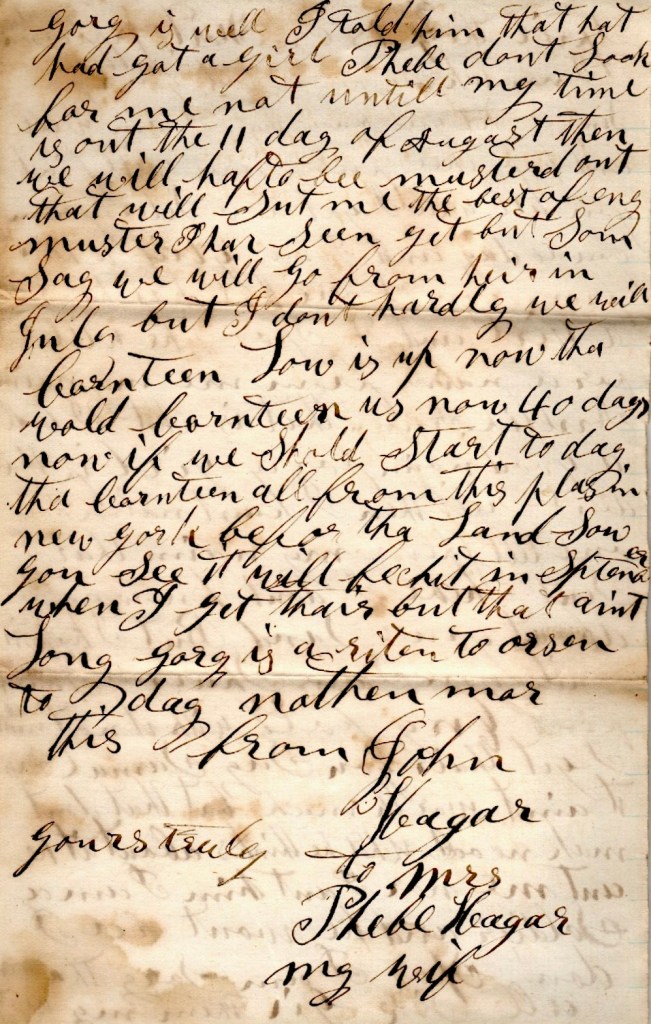 gorg is well I told him that hat
had got a girl Phebe dont Look
for me not untill my time
is out the 11 day of August then
we will hafto bee musterd out
that will Sut me the best of eny
muster I hav Seen yet but Som
Say we will go from heir in
July but I dont hardly we will
cornteen Low is up now tha
wold cornteen us now 40 days
now if we Shold Start to day
tha cornteen all from this plas in
new york befor tha Land Sow
you See it will be hit in Septem
when I get thair but that aint
Long gorg is a riten to orsen
to day nothen mor
this from John
Heagar
yours truly to mrs
Phebe Heagar
my wif